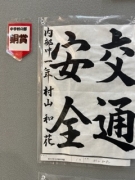 交通
安全
内部中一年 村山和花
銅賞